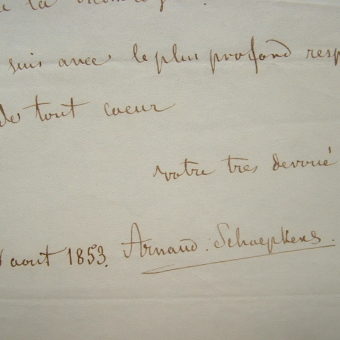 à la
suis avec le plus profond resp
de tout coeur
votre tres devoué
aout 1853. Arnaud. Schaepkens.